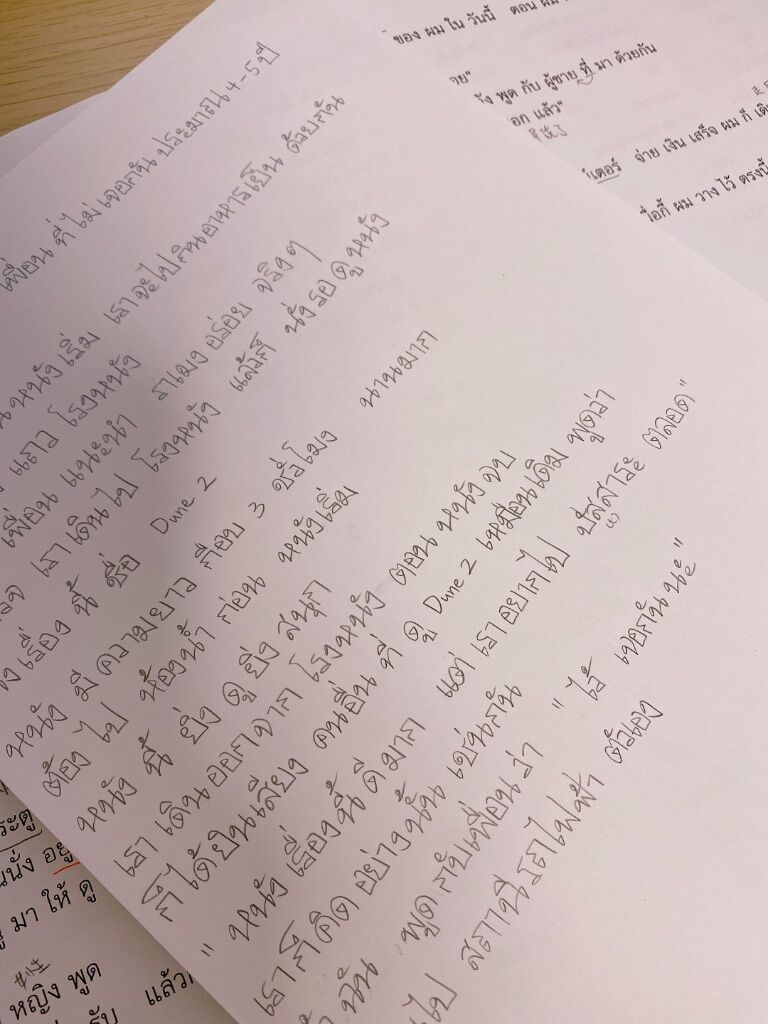 ของ ผม ใน วันนี้ ตอน
พูด กับ ผู้ชาย ที่ มา ด้วยกัน
แล้ว"
จ่าย เงิน เสร็จ ผม ก็
ผม วาง ไว้ ตรงนี้
เพื่อน ที่ ไม่ เจอกัน ประมาณ 4-5 ปี
หนัง เริ่ม เราจะไปกินอาหารเย็น ด้วยกัน
แถว โรงหนัง
เพื่อน แนะนำ ราเมง อร่อย จริงๆ
เราเดินไป โรงหนัง แล้วก็ นั่งรอดูหนัง
เรื่อง นี้ ชื่อ Dune 2
หนัง มี ความยาว เกือบ 3 ชั่วโมง นานมาก
ต้อง ไป ห้องน้ำ ก่อน หนังเริ่ม
หนัง นี้ ยิ่ง ดู ยิ่ง สนุก
เรา เดินออกจาก โรงหนัง ตอน หนังจบ
ก็ได้ยินเสียง คนอื่น ที่ ดู Dune 2 เหมือนเดิม พูดว่า
"หนัง เรื่องนี้ ดีมาก แต่ เราอยากไป ปัสสาวะ ตลอด"
เราก็คิด อย่างนั้น เช่นกัน
นั้น พูดกับเพื่อนว่า "ไว้ เจอกันนะ"
ไป สถานีรถไฟฟ้า ตัวเอง
ระตู
นั่ง อยู่
มา ให้ ดู
หญิง พูด
แล้ว